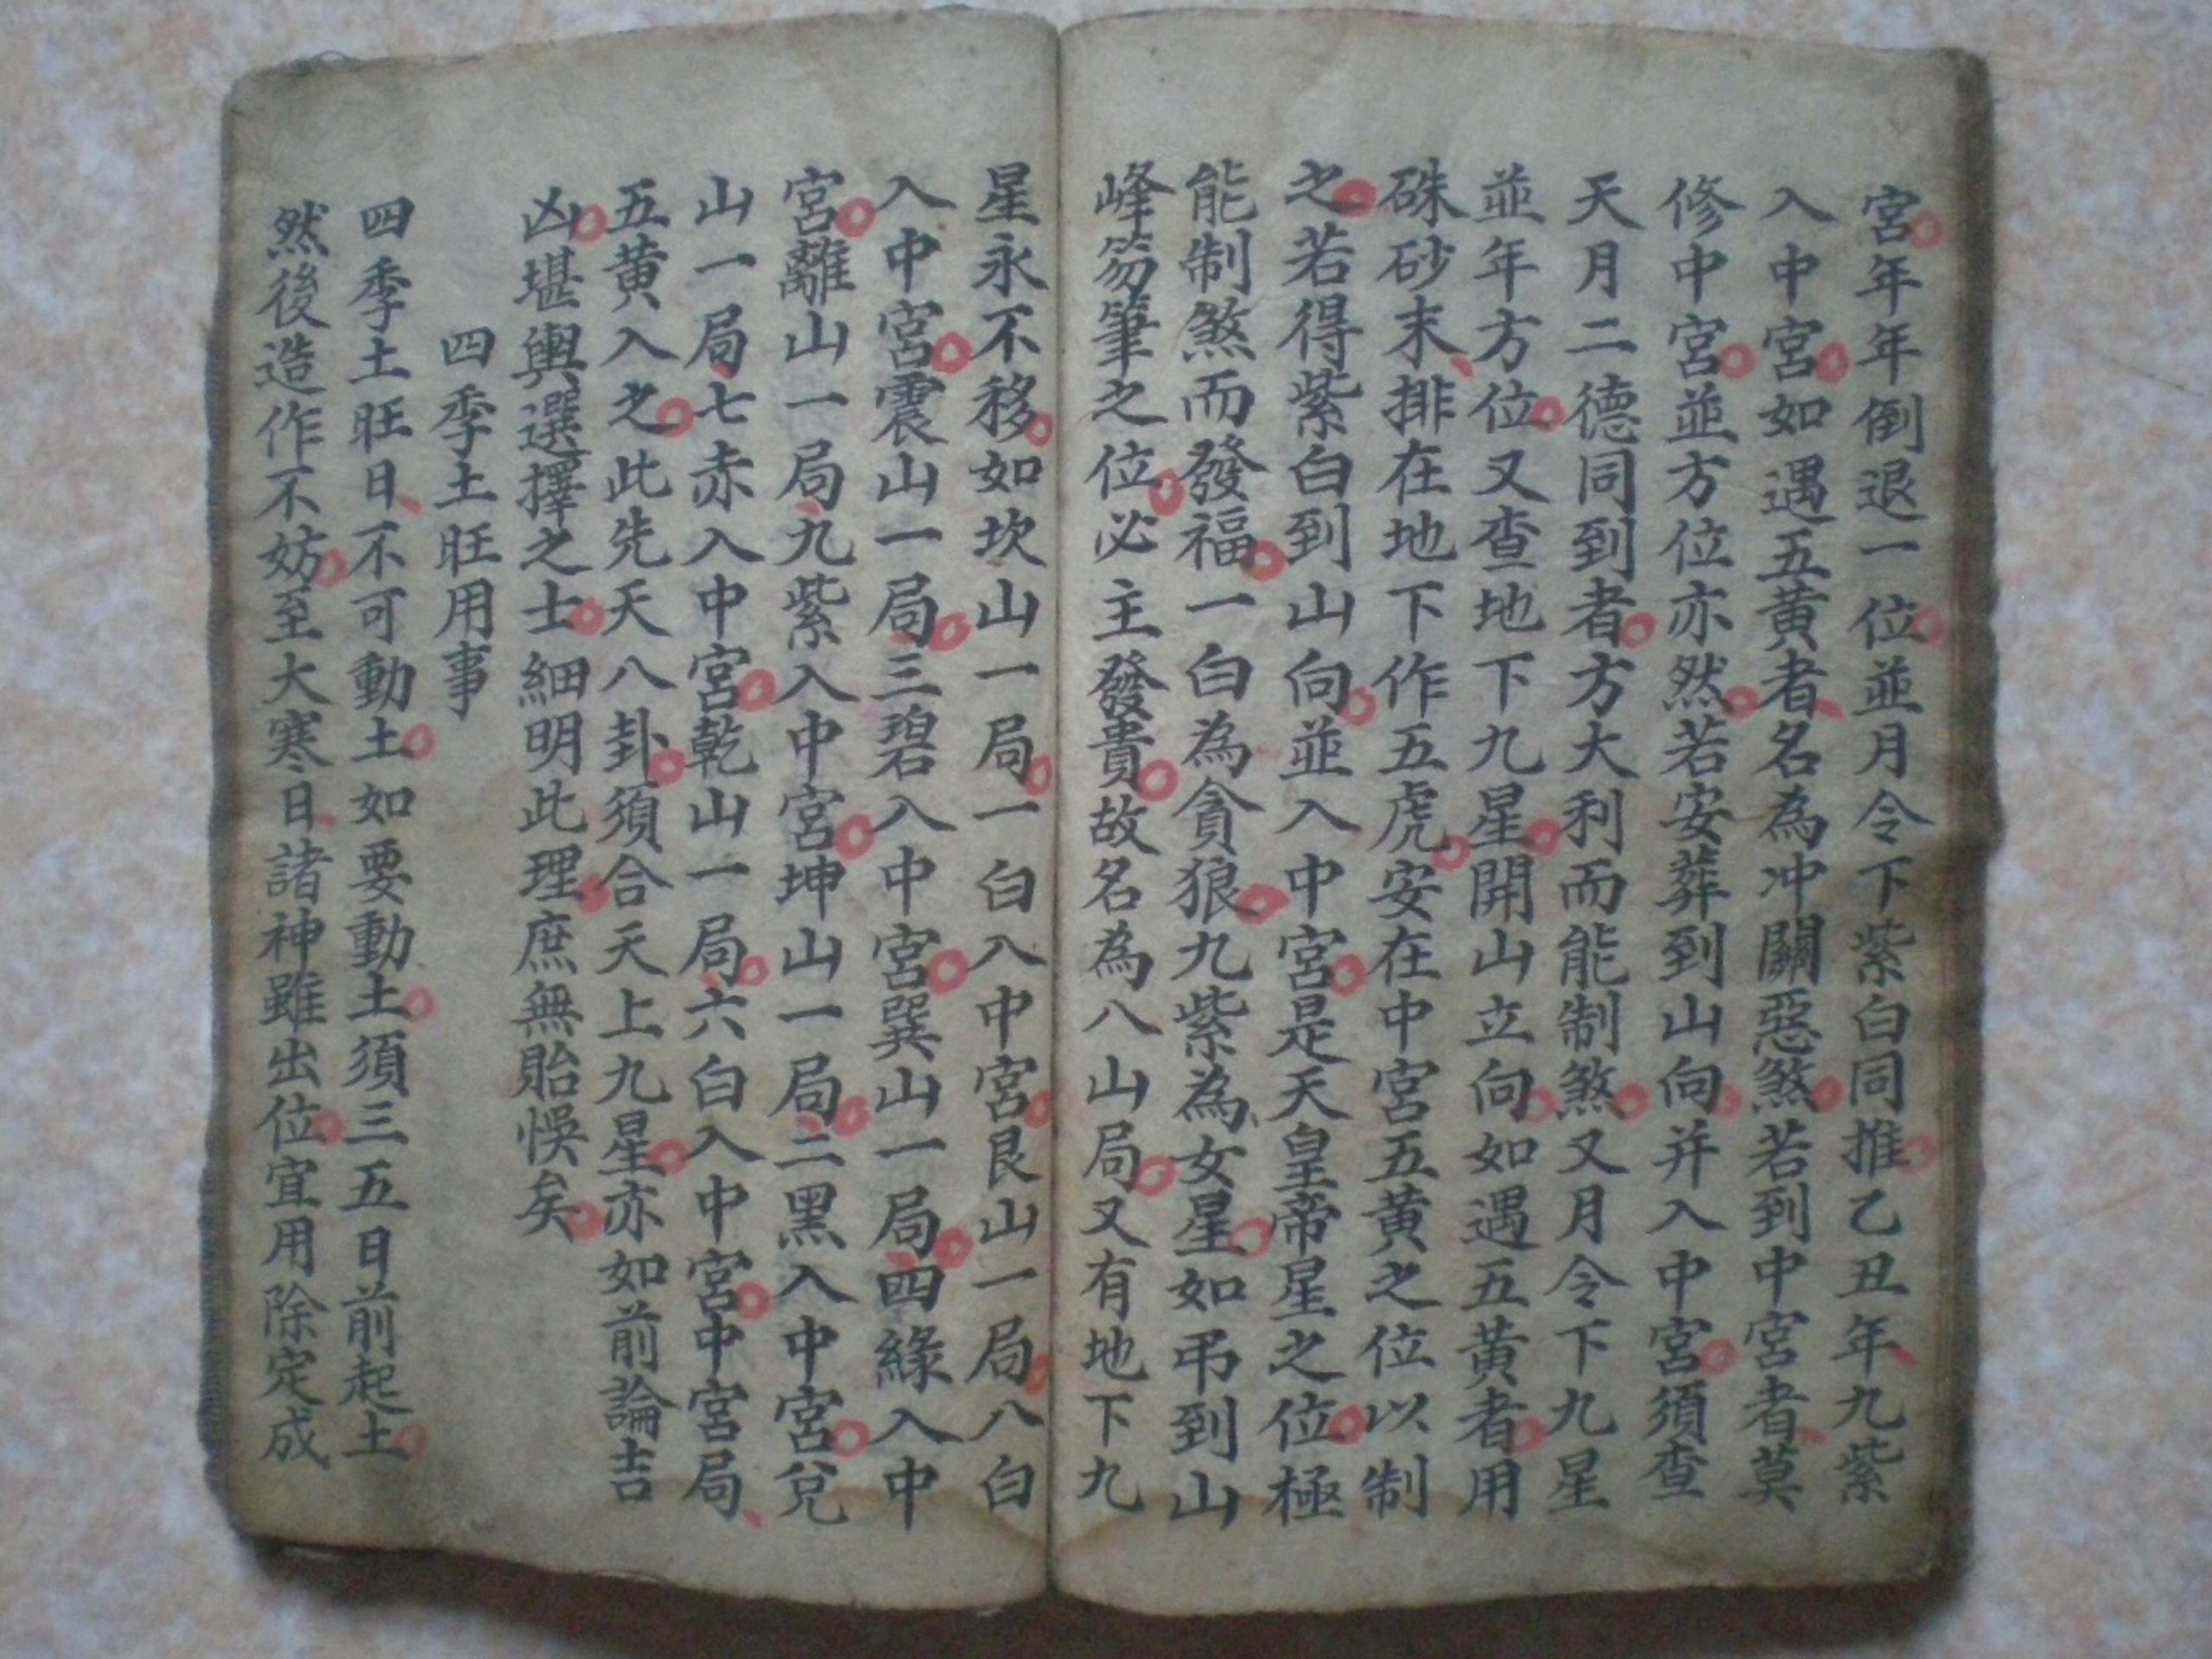 宮年年倒退一位並月令下紫白同推乙丑年九紫
入中宮如遇五黃者名為冲關惡煞若到中宮者莫
修中宮並方位亦然若安葬到山向并入中宮須查
天月二德同到者方大利而能制煞又月令下九星
並年方位又查地下九星開山立向如遇五黃者用
硃砂末排在地下作五虎安在中宮五黃之位以制
之若得紫白到山向並入中宮是天皇帝星之位極
能制煞而發福一白為貪狼九紫為女星如弔到山
峰笏筆之位必主發貴故名為八山局又有地下九
星永不移如坎山一局一白入中宮艮山一局八白
入中宮震山一局三碧入中宮巽山一局四緣入中
宮離山一局九紫入中宮坤山一局二黑入中宮兌
山一局七赤入中宮乾山一局六白入中宮中宮局
五黃入之此先天八卦須合天上九星亦如前論吉
凶堪輿選擇之士細明此理庶無貽悞矣
四季土旺用事
四季土旺日不可動土如要動土須三五日前起土
然後造作不妨至大寒日諸神雖出位宜用除定成